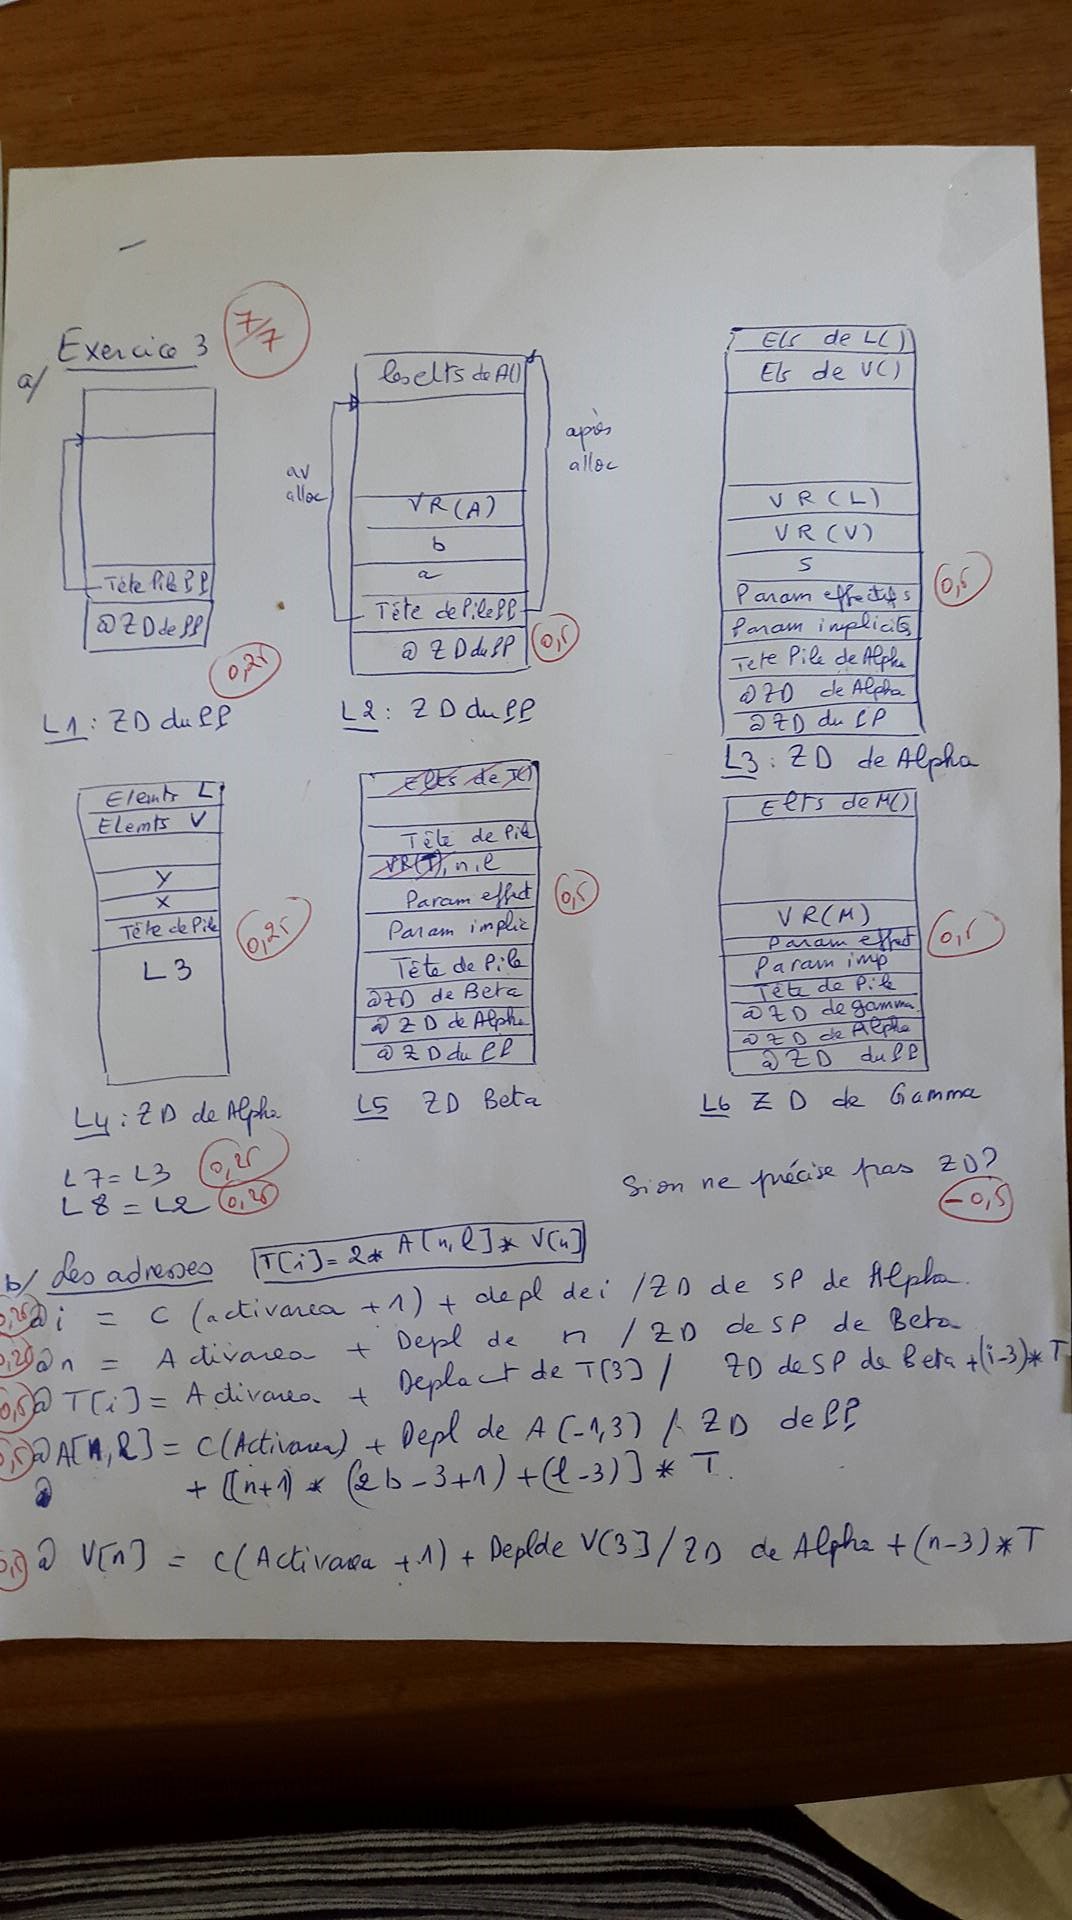 Exercice 3
7/7
a/
Tête Pile PP
@ ZD de PP
0,25
L1 : ZD du PP
les elts de A()
av alloc
après alloc
VR(A)
b
a
Tête de Pile PP
@ ZD du PP
0,5
L2 : ZD du PP
Els de L()
Els de V()
VR(L)
VR(V)
S
Param effectifs
0,5
Param implicits
Tete Pile de Alpha
@ZD de Alpha
@ZD du PP
L3 : ZD de Alpha
Elemts L
Elemts V
y
x
Tête de Pile
0,25
L3
L4 : ZD de Alpha
Elts de T()
Tête de Pile
VR(T), n, l
Param effect
0,5
Param implic
Tête de Pile
@ZD de Beta
@ ZD de Alpha
@ ZD du PP
L5 ZD Beta
Elts de M()
VR(M)
Param effect
0,5
Param imp
Tête de Pile
@ ZD de gamma
@ ZD de Alpha
@ ZD du PP
L6 ZD de Gamma
L7 = L3 0,25
L8 = L2 0,25
Si on ne précise pas ZD?
-0,5
b/ Les adresses T[i] = 2 * A[n, l] * V[n]
0,25 @ i = C (activarea + 1) + depl de i / ZD de SP de Alpha.
0,25 @ n = Activarea + Depl de n / ZD de SP de Beta
0,5 @ T[i] = Activarea + Deplact de T[3] / ZD de SP de Beta + (i-3) * T
0,5 @ A[n, l] = C (Activarea) + Depl de A(-1,3) / ZD de PP
+ [(n+1) * (2b - 3+1) + (l-3)] * T.
0,5 @ V[n] = C(Activarea + 1) + Depl de V[3] / ZD de Alpha + (n-3) * T